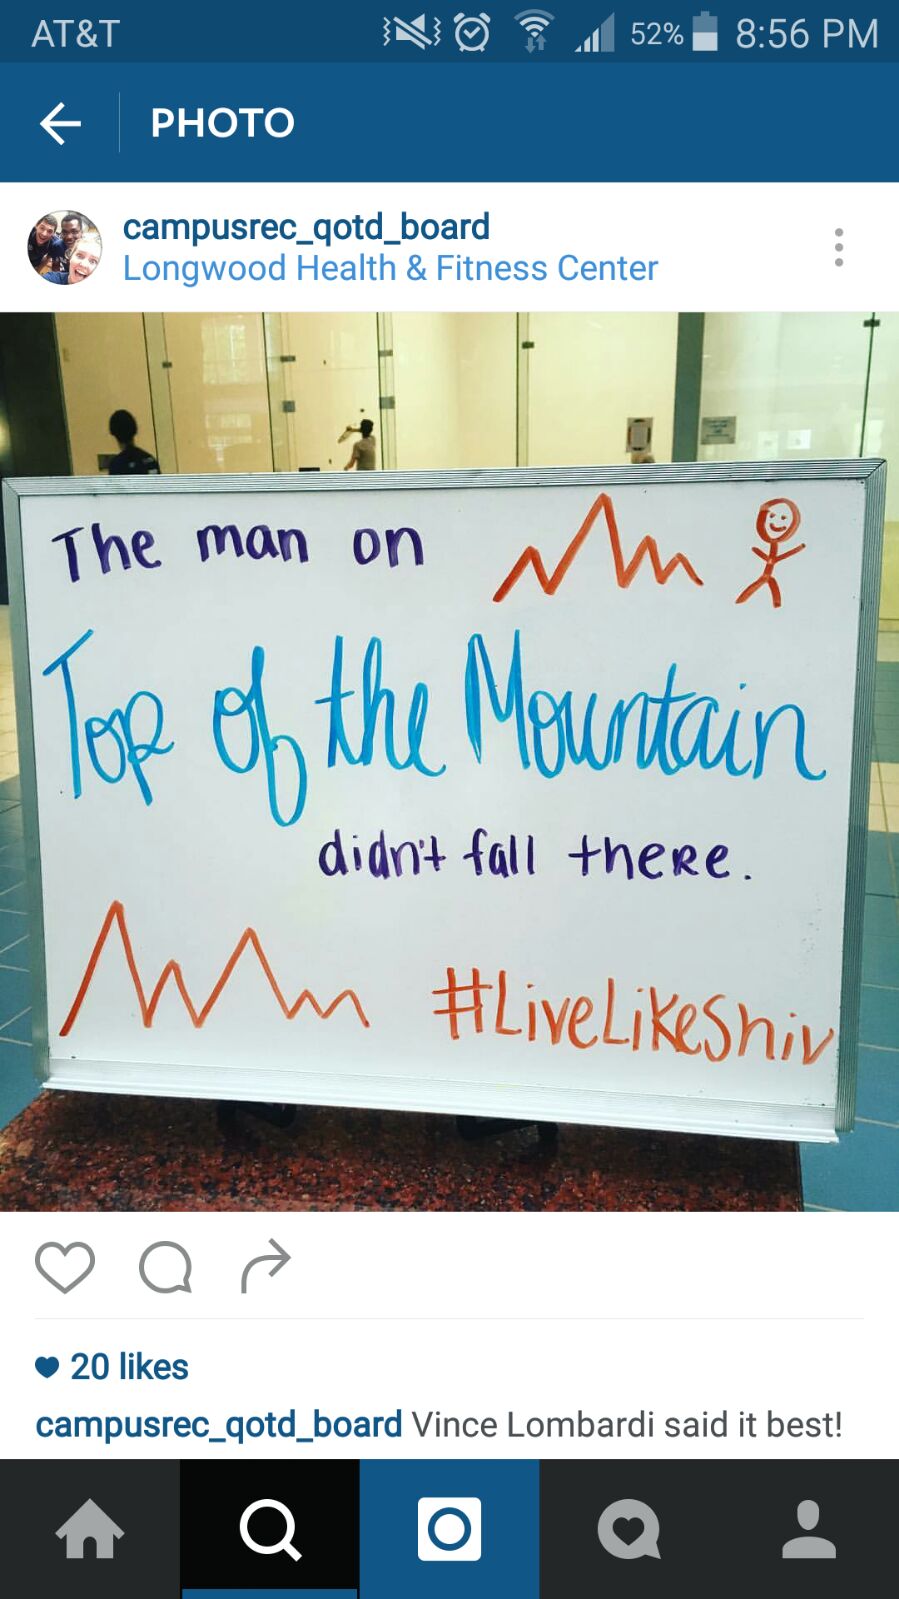 AT&T 52% 8:56 PM
PHOTO
campusrec_qotd_board
Longwood Health & Fitness Center
The man on
Top of the Mountain
didn't fall there.
#LiveLikeShiv
20 likes
campusrec_qotd_board Vince Lombardi said it best!